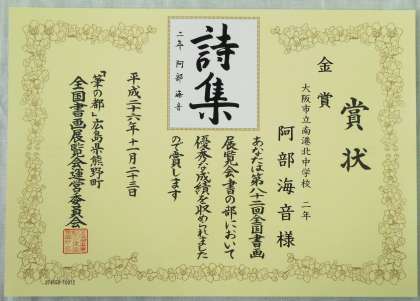 賞状
金賞
大阪市立南港北中学校 二年
阿部海音様
あなたは第八十二回全国書画
展覧会書の部において
優秀な成績を収められました
ので賞します
平成二十六年十一月二十三日
「筆の都」広島県熊野町
全国書画展覧会運営委員会
詩集
二年 阿部海音